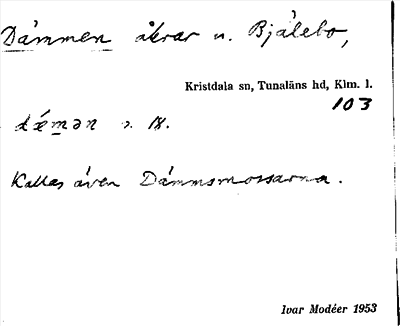 Dämmen åkrar u. Bjälebo,
Kristdala sn, Tunaläns hd, Klm. l.
103
dǽmən s. 18.
Kallas även Dämmsmossarna.
Ivar Modéer 1953